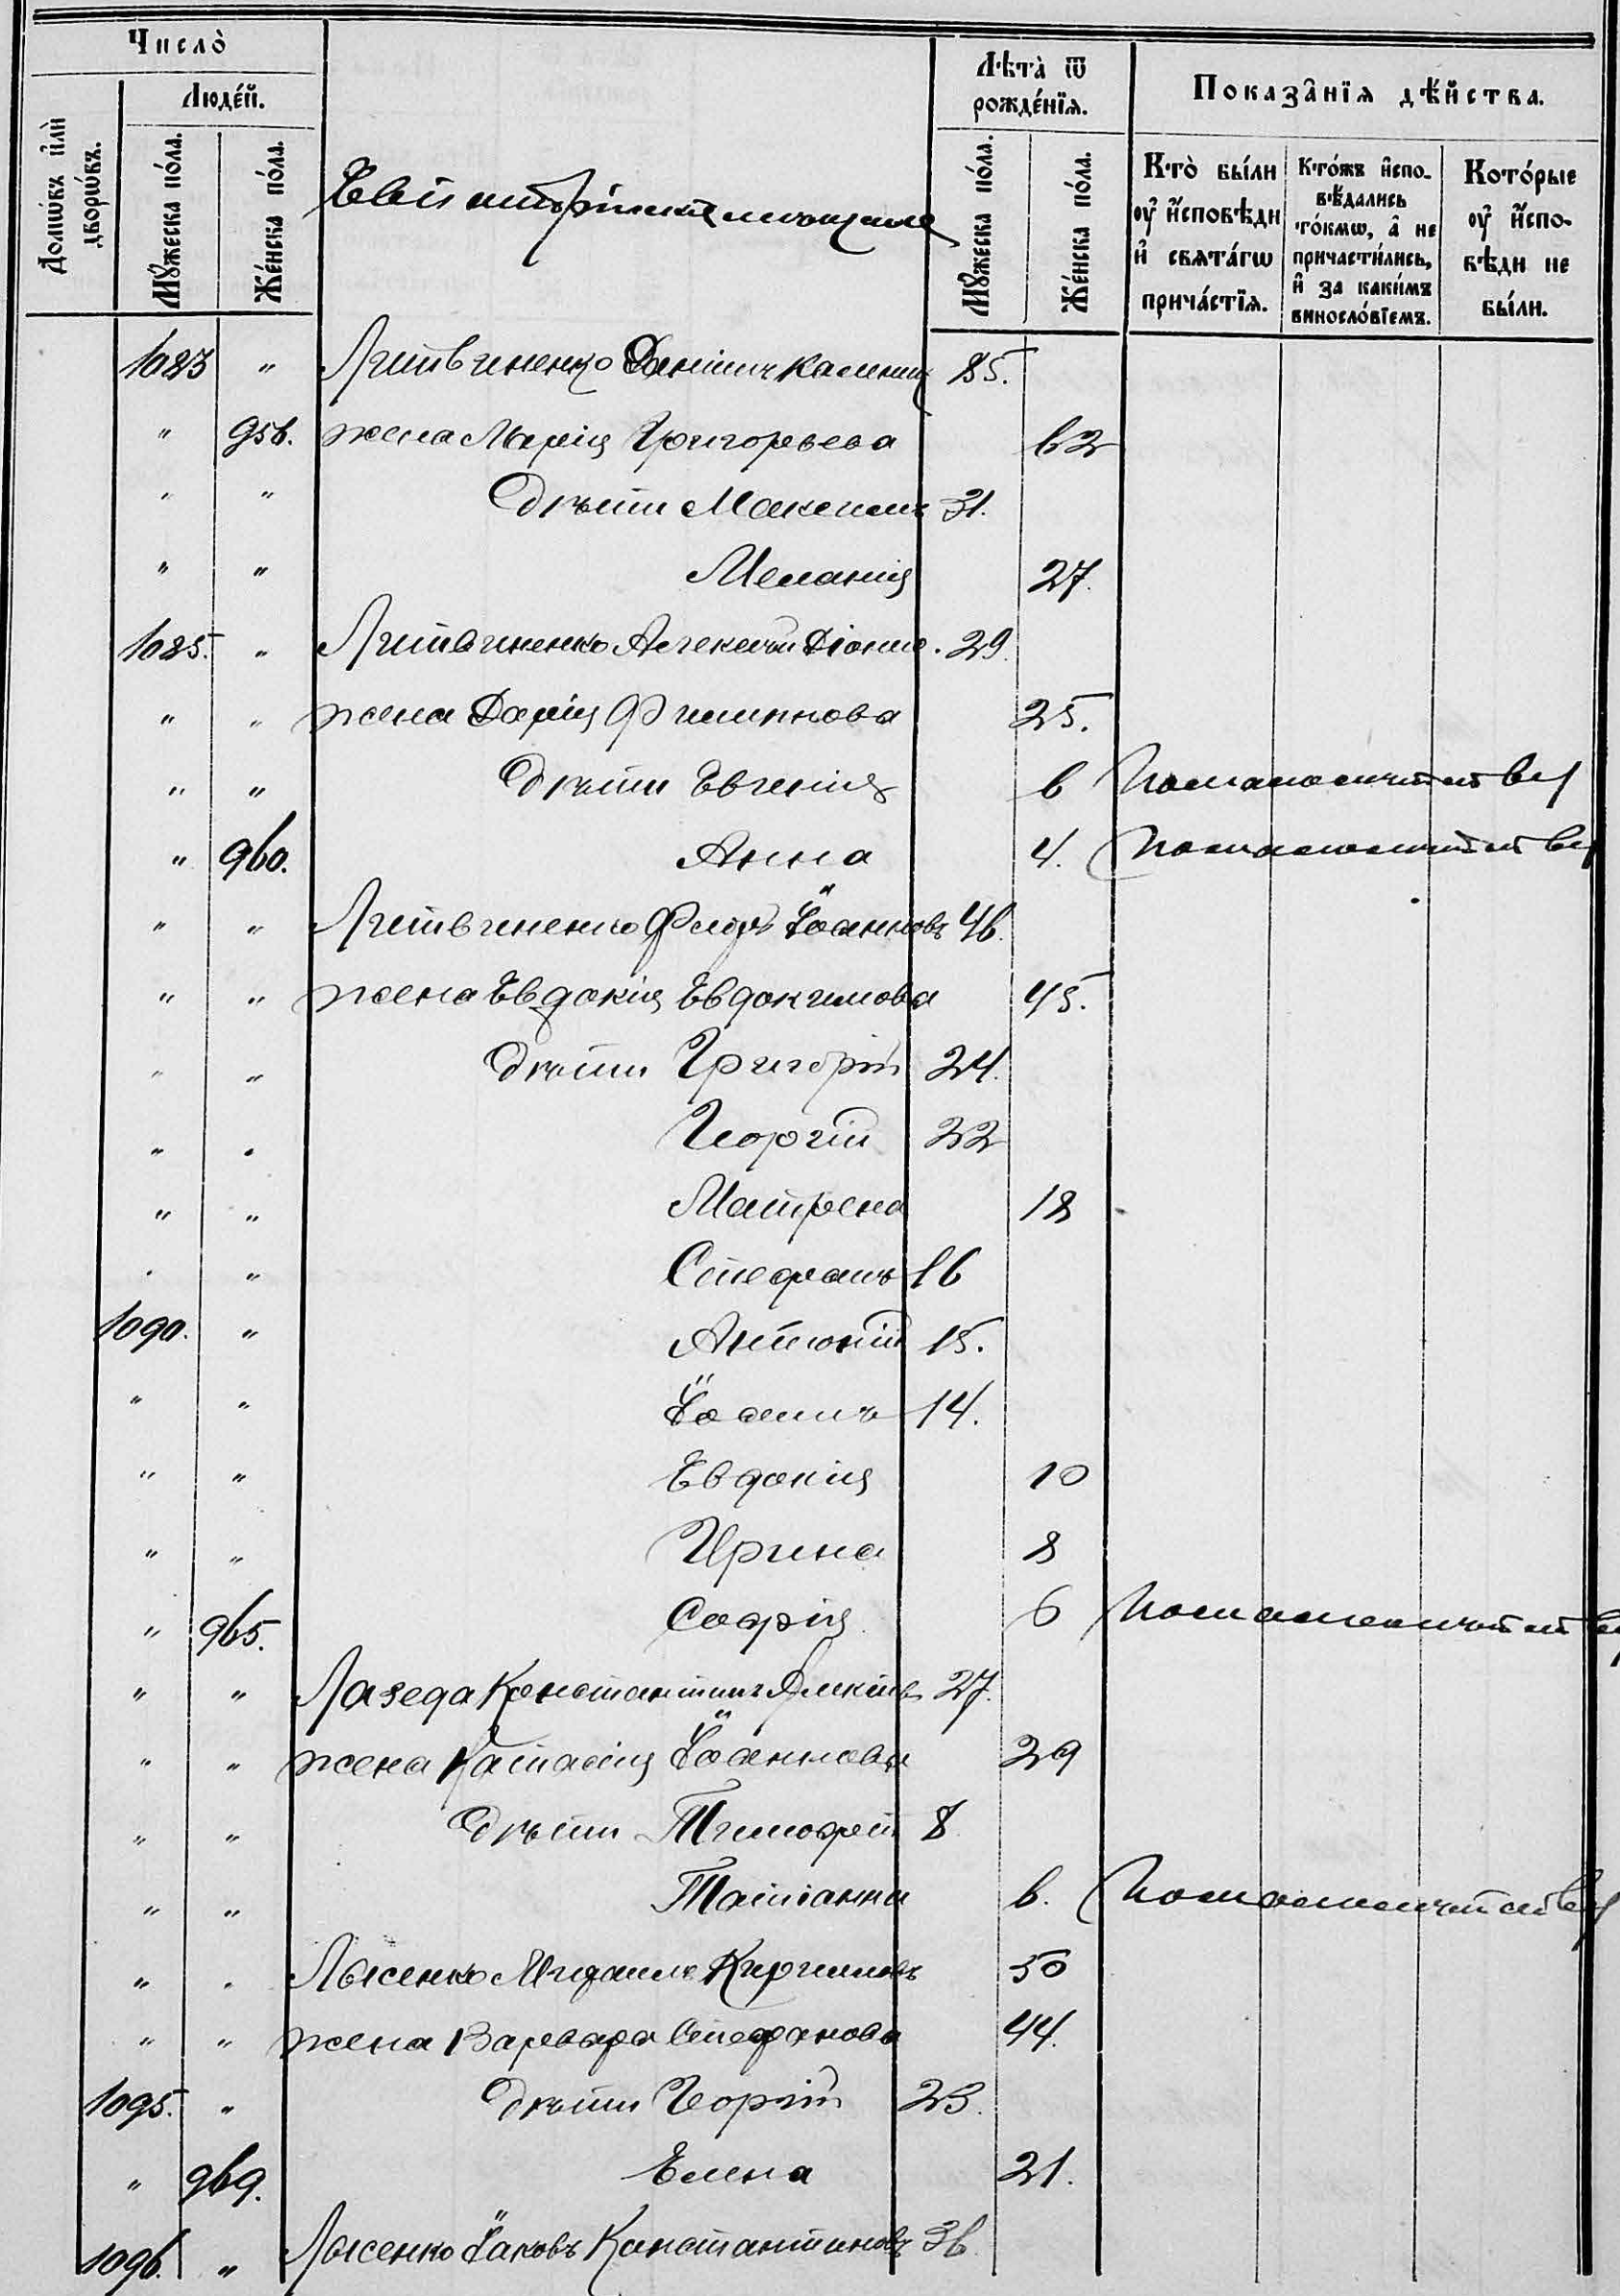 Число̀
Людéй.
Домѡ́въ и҆лѝ
дворѡ́въ.
Мꙋ́жеска по́ла.
Же́нска по́ла.
Лѣ́та ѿ
рожде́нїѧ.
Мꙋ́жеска по́ла.
Же́нска по́ла.
Показа̑нїѧ дѣ́йства.
Кто̀ бы́ли
оу҆ и҆́сповѣди
и҆ свѧта́гѡ
прича́стїѧ.
Кто́жъ и҆спо-
вѣ́дались
то́кмѡ, а҆ не
причасти́лись,
и҆ за каки́мъ
винословїемъ.
Кото́рые
оу҆ и҆́спо-
вѣди не
бы́ли.
мещане
1083 " Литвиненко Калинин 85.
" 956. жена Марія Григорьева 62
" " дѣти Максимъ 31.
" " Меланія 27.
1085. " Литвиненко Алексѣй Діонис. 29.
" " жена Дарія Филиппова 25.
" " дѣти Евгенія 6
" 960. Анна 4.
" " Литвиненко Іоанновъ 46.
" " жена Евдокія Евдокимова 45.
" " дѣти Григорій 24.
" " Георгій 22
" " Матрена 18
" " Стефанъ 16
1090. " Антоній 15.
" " Іоаннъ 14.
" " Евдокія 10
" " Ирина 8
" 965. Софія 6
" " Лазеда Константинъ 27.
" " жена Іоаннова 29
" " дѣти Тимофей 8
" " Татіанна 6.
" " Лысенко Михаилъ Кирилловъ 50
" " жена Варвара Стефанова 44.
1095. " дѣти Георгій 23.
" 969. Елена 21.
1096. " Лысенко Іаковъ Константиновъ 36